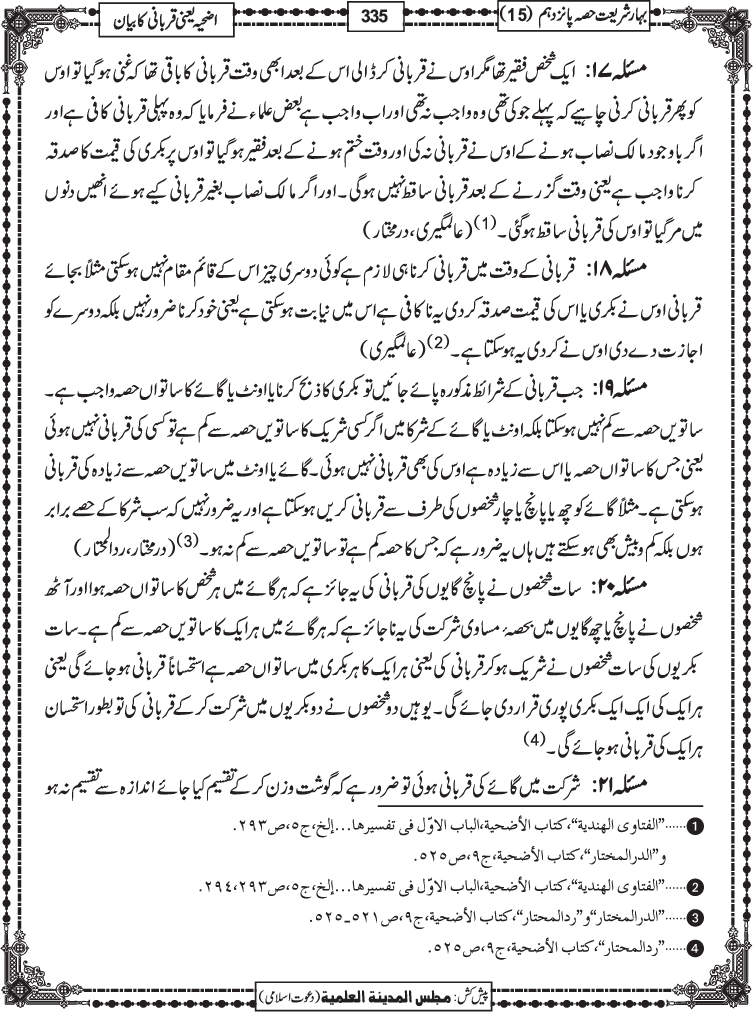 بہارِ شریعت حصہ پانزدہم (15)
335
اضحیہ یعنی قربانی کا بیان
مسئلہ ۱۷: ایک شخص فقیر تھا مگر اوس نے قربانی کر ڈالی اس کے بعد ابھی وقت قربانی کا باقی تھا کہ غنی ہوگیا تو اوس
کو پھر قربانی کرنی چاہیے کہ پہلے جو کی تھی وہ واجب نہ تھی اور اب واجب ہے بعض علماء نے فرمایا کہ وہ پہلی قربانی کافی ہے اور
اگر باوجود مالک نصاب ہونے کے اوس نے قربانی نہ کی اور وقت ختم ہونے کے بعد فقیر ہوگیا تو اوس پر بکری کی قیمت کا صدقہ
کرنا واجب ہے یعنی وقت گزرنے کے بعد قربانی ساقط نہیں ہوگی۔ اور اگر مالک نصاب بغیر قربانی کیے ہوئے انھیں دنوں
میں مرگیا تو اوس کی قربانی ساقط ہوگئی۔(1) (عالمگیری، درمختار)
مسئلہ ۱۸: قربانی کے وقت میں قربانی کرنا ہی لازم ہے کوئی دوسری چیز اس کے قائم مقام نہیں ہوسکتی مثلاً بجائے
قربانی اوس نے بکری یا اس کی قیمت صدقہ کردی یہ ناکافی ہے اس میں نیابت ہوسکتی ہے یعنی خود کرنا ضرور نہیں بلکہ دوسرے کو
اجازت دے دی اوس نے کردی یہ ہوسکتا ہے۔(2) (عالمگیری)
مسئلہ ۱۹: جب قربانی کے شرائط مذکورہ پائے جائیں تو بکری کا ذبح کرنا یا اونٹ یا گائے کا ساتواں حصہ واجب ہے۔
ساتویں حصہ سے کم نہیں ہوسکتا بلکہ اونٹ یا گائے کے شرکا میں اگر کسی شریک کا ساتویں حصہ سے کم ہے تو کسی کی قربانی نہیں ہوئی
یعنی جس کا ساتواں حصہ یا اس سے زیادہ ہے اوس کی بھی قربانی نہیں ہوئی۔ گائے یا اونٹ میں ساتویں حصہ سے زیادہ کی قربانی
ہوسکتی ہے۔ مثلاً گائے کو چھ یا پانچ یا چار شخصوں کی طرف سے قربانی کریں ہوسکتا ہے اور یہ ضرور نہیں کہ سب شرکا کے حصے برابر
ہوں بلکہ کم و بیش بھی ہوسکتے ہیں ہاں یہ ضرور ہے کہ جس کا حصہ کم ہے تو ساتویں حصہ سے کم نہ ہو۔(3) (درمختار، ردالمحتار)
مسئلہ ۲۰: سات شخصوں نے پانچ گایوں کی قربانی کی یہ جائز ہے کہ ہر گائے میں ہر شخص کا ساتواں حصہ ہوا اور آٹھ
شخصوں نے پانچ یا چھ گایوں میں بحصہء مساوی شرکت کی یہ ناجائز ہے کہ ہر گائے میں ہر ایک کا ساتویں حصہ سے کم ہے۔ سات
بکریوں کی سات شخصوں نے شریک ہوکر قربانی کی یعنی ہر ایک کا ہر بکری میں ساتواں حصہ ہے استحساناً قربانی ہوجائے گی یعنی
ہر ایک کی ایک ایک بکری پوری قرار دی جائے گی۔ یوہیں دو شخصوں نے دو بکریوں میں شرکت کرکے قربانی کی تو بطور استحسان
ہر ایک کی قربانی ہوجائے گی۔(4)
مسئلہ ۲۱: شرکت میں گائے کی قربانی ہوئی تو ضرور ہے کہ گوشت وزن کرکے تقسیم کیا جائے اندازہ سے تقسیم نہ ہو
1 ......"الفتاوی الھندیة"، کتاب الأضحیة، الباب الاوّل فی تفسیرھا...إلخ، ج۵، ص۲۹۳.
و"الدرالمختار"، کتاب الأضحیة، ج۹، ص۵۲۵.
2 ......"الفتاوی الھندیة"، کتاب الأضحیة، الباب الاوّل فی تفسیرھا...إلخ، ج۵، ص۲۹۳، ۲۹۴.
3 ......"الدرالمختار" و"ردالمحتار"، کتاب الأضحیة، ج۹، ص۵۲۱۔۵۲۵.
4 ......"ردالمحتار"، کتاب الأضحیة، ج۹، ص۵۲۵.
پیش کش: مجلس المدینة العلمیة (دعوت اسلامی)